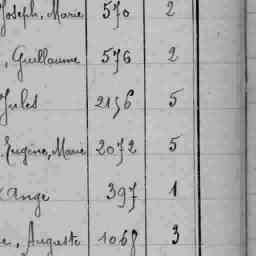 Joseph, Marie 570 2
, Guillaume 576 2
Jules 2156 5
Eugène, Marie 2072 5
Ange 397 1
Auguste 1068 3